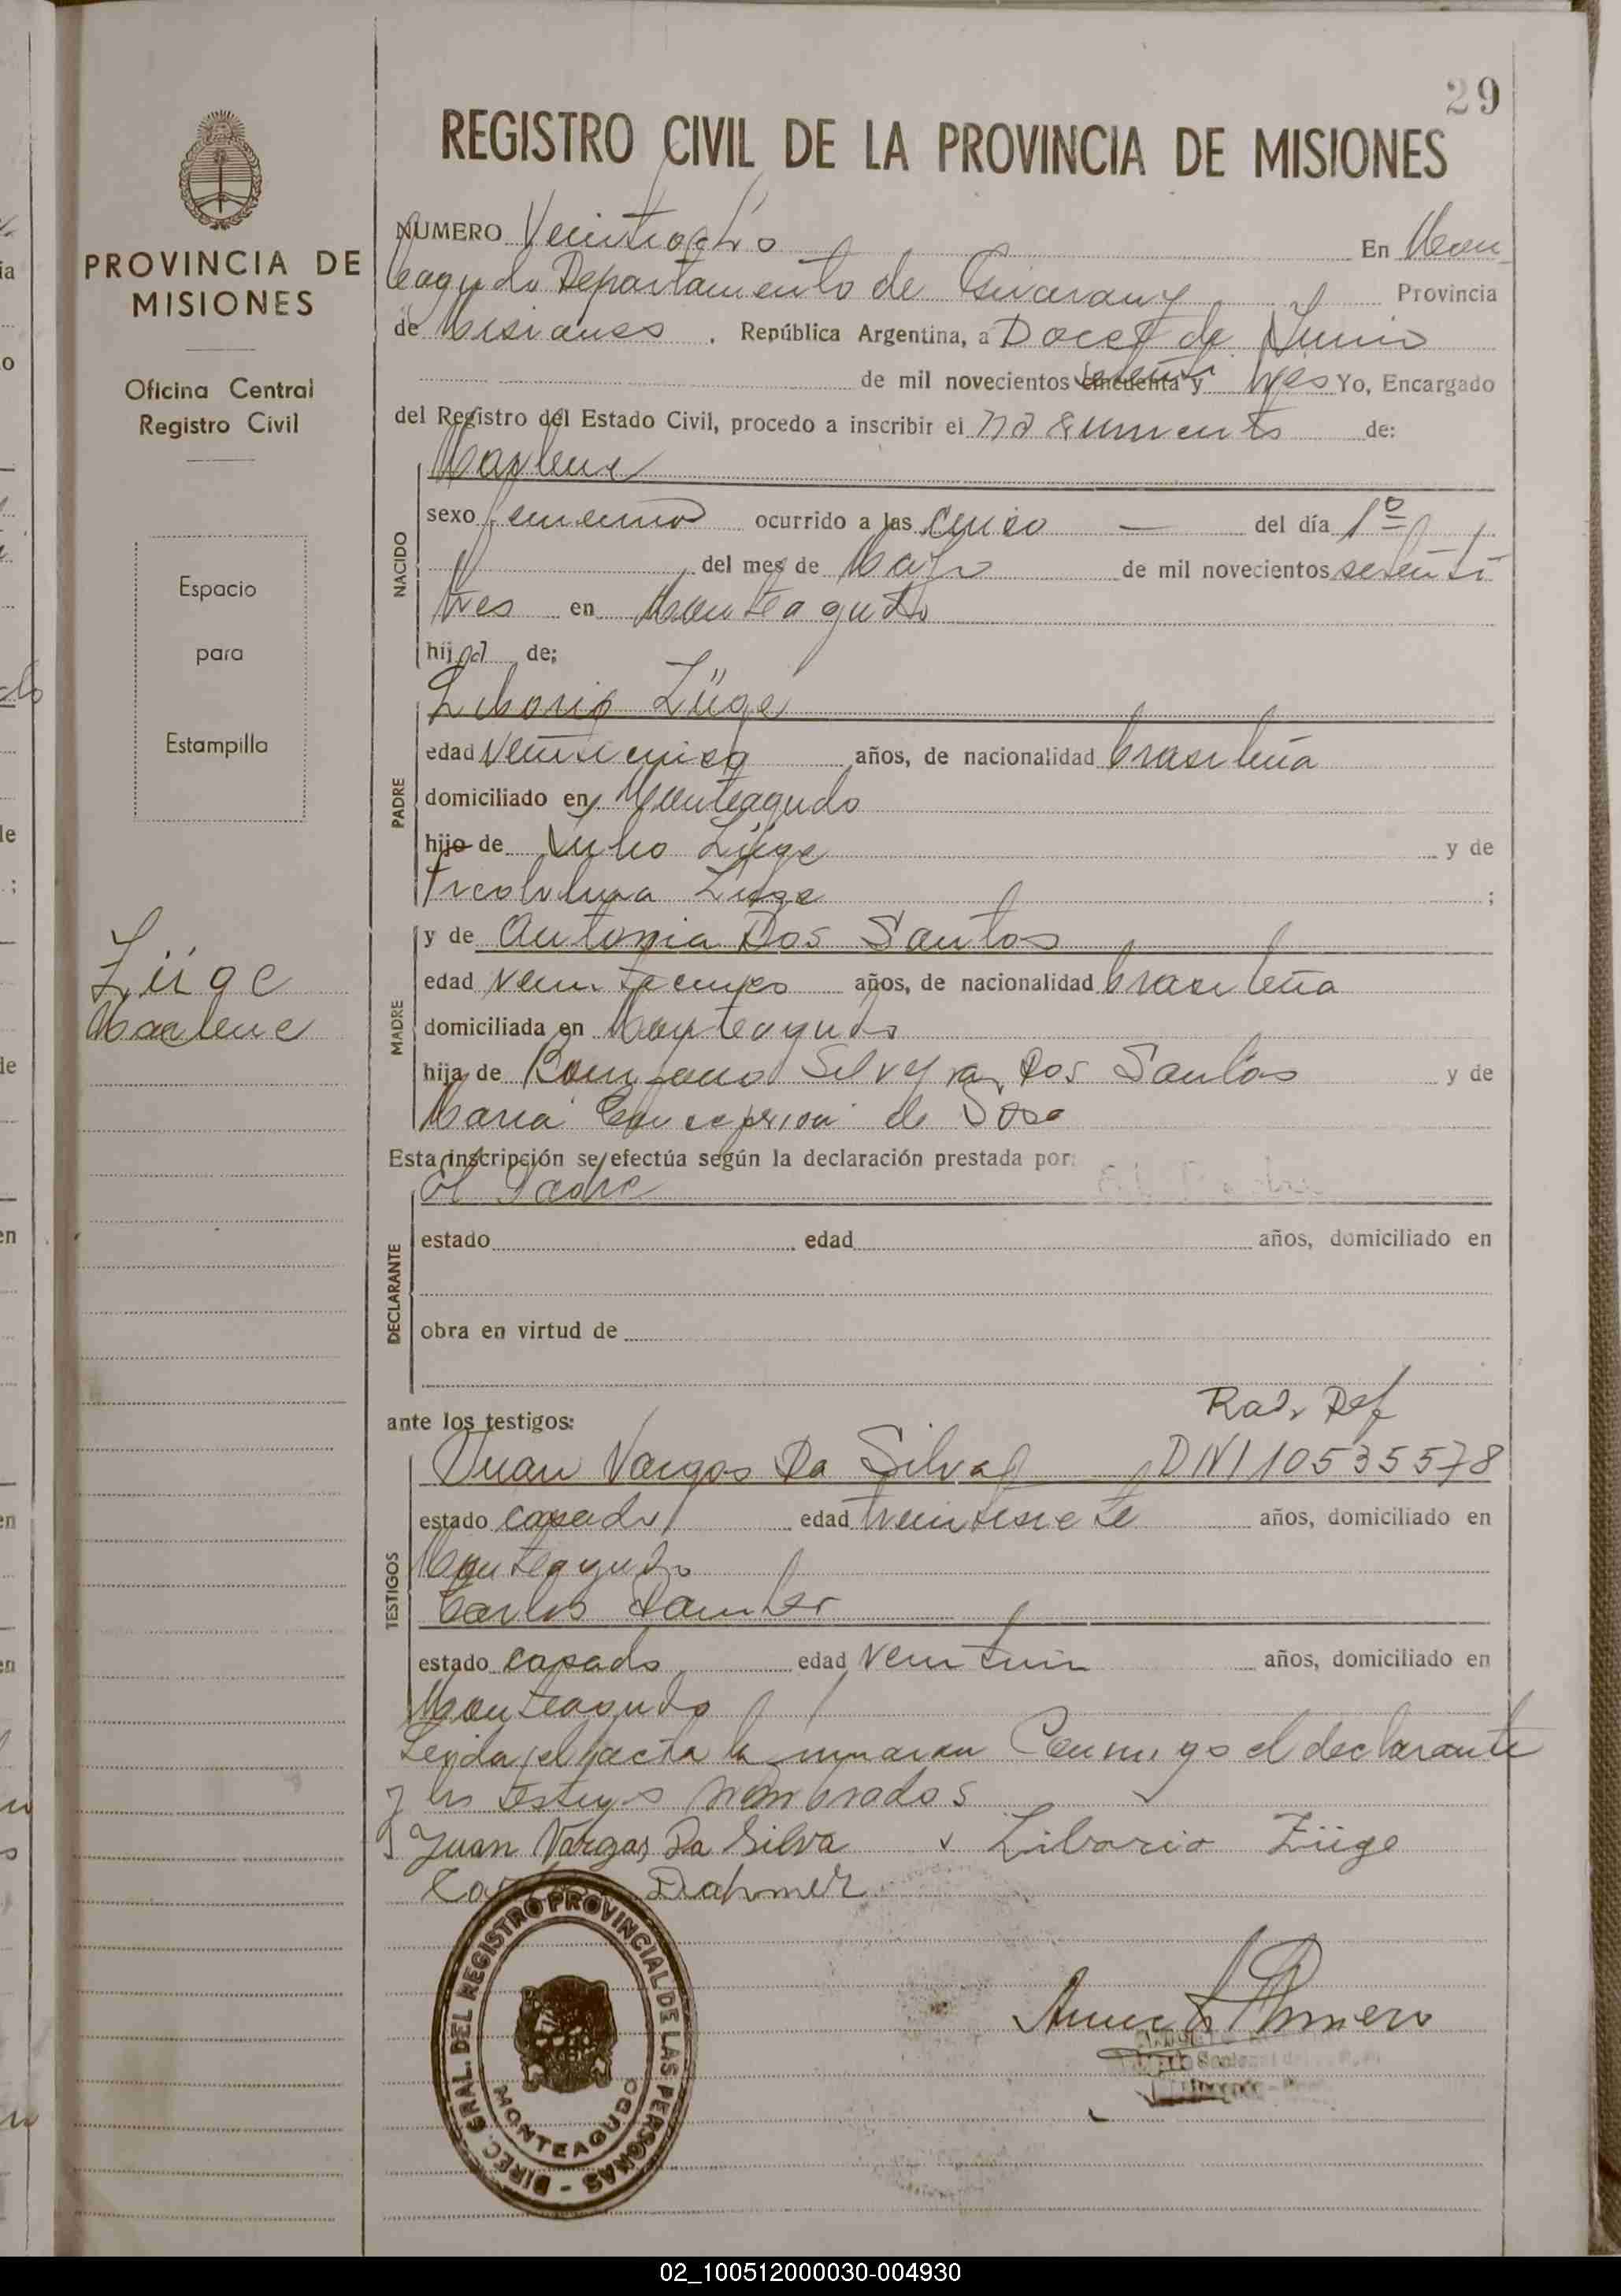 29
REGISTRO CIVIL DE LA PROVINCIA DE MISIONES
PROVINCIA DE
MISIONES
Oficina Central
Registro Civil
Espacio
para
Estampilla
Züge
Marlene
NUMERO Veintiocho En Mon
teagudo Departamento de Guarany Provincia
de Misiones . República Argentina, a Doce de Junio
de mil novecientos cincuenta y setenta tres Yo, Encargado
del Registro del Estado Civil, procedo a inscribir el nacimiento de:
Marlene
NACIDO
sexo femenino ocurrido a las cinco — del día 1º
del mes de Mayo de mil novecientos setenti
tres en Monteagudo
hija de;
Liborio Züge
PADRE
edad veinticinco años, de nacionalidad brasileña
domiciliado en Monteagudo
hijo de Julio Züge y de
Züge ;
MADRE
y de Antonia Dos Santos
edad años, de nacionalidad brasileña
domiciliada en Monteagudo
hija de Silveyra Dos Santos y de
Maria Concepcion de Sosa
Esta inscripción se efectúa según la declaración prestada por:
El Padre
DECLARANTE
estado edad años, domiciliado en
obra en virtud de
ante los testigos:
Rad. Def
Juan Vargas Da Silva DNI 10535578
TESTIGOS
estado casado edad treintisiete años, domiciliado en
Monteagudo
Carlos
estado casado edad veintiun años, domiciliado en
Monteagudo
Leida el acta la firman Conmigo el declarante
y los testigos nombrados
Juan Vargas Da Silva x Liborio Züge
Dahmer
DIREC. GRAL. DEL REGISTRO PROVINCIAL DE LAS PERSONAS -
MONTEAGUDO
02_100512000030-004930